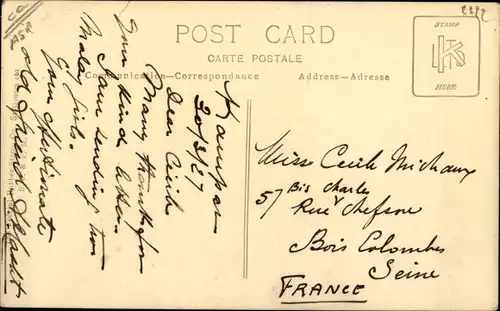 POST CARD
CARTE POSTALE
Communication—Correspondance
Address—Adresse
STAMP
HERE
Kampar
30/3/27
Dear Cecile
Many thanks for
Your kind letter.
I am sending two
Malay Girls.
Your affectionate
old friend
Misse Cecile Michaux
57 Bis Charles
Rue Chefson
Bois Colombes
Seine
FRANCE